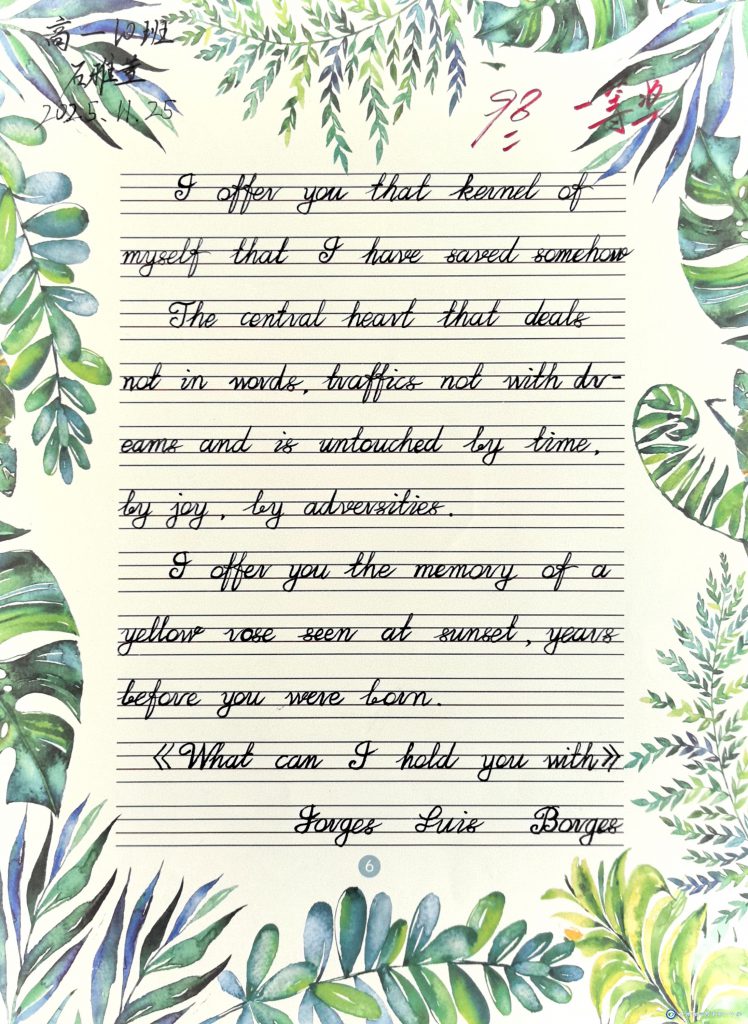 高一10班
石雅
2025.11.25
98 一等奖
I offer you that kernel of
myself that I have saved somehow
The central heart that deals
not in words, traffics not with dr-
eams and is untouched by time,
by joy, by adversities.
I offer you the memory of a
yellow rose seen at sunset, years
before you were born.
《What can I hold you with》
Jorges Luis Borges
6